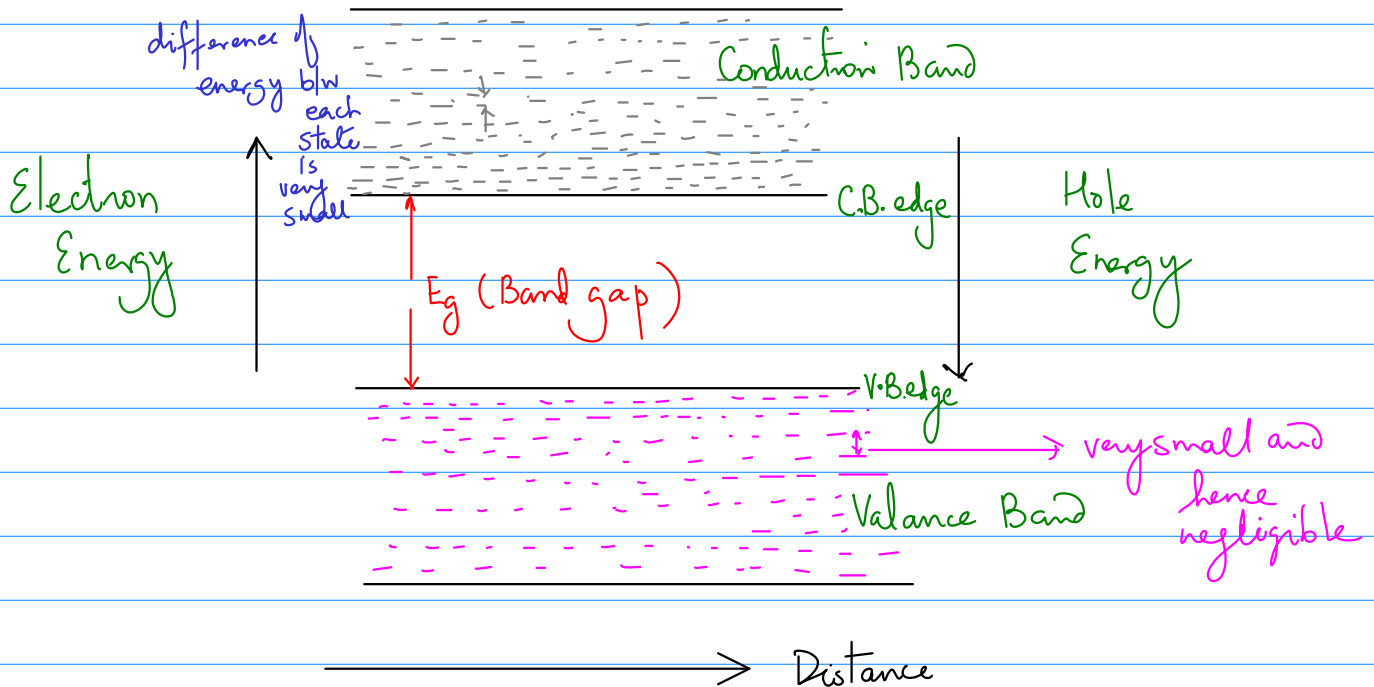 difference of
energy b/w
each
state
is
very
small
Conduction Band
Electron
Energy
C.B. edge
Hole
Energy
Eg (Band gap)
V.B. edge
very small and
hence
negligible
Valance Band
Distance